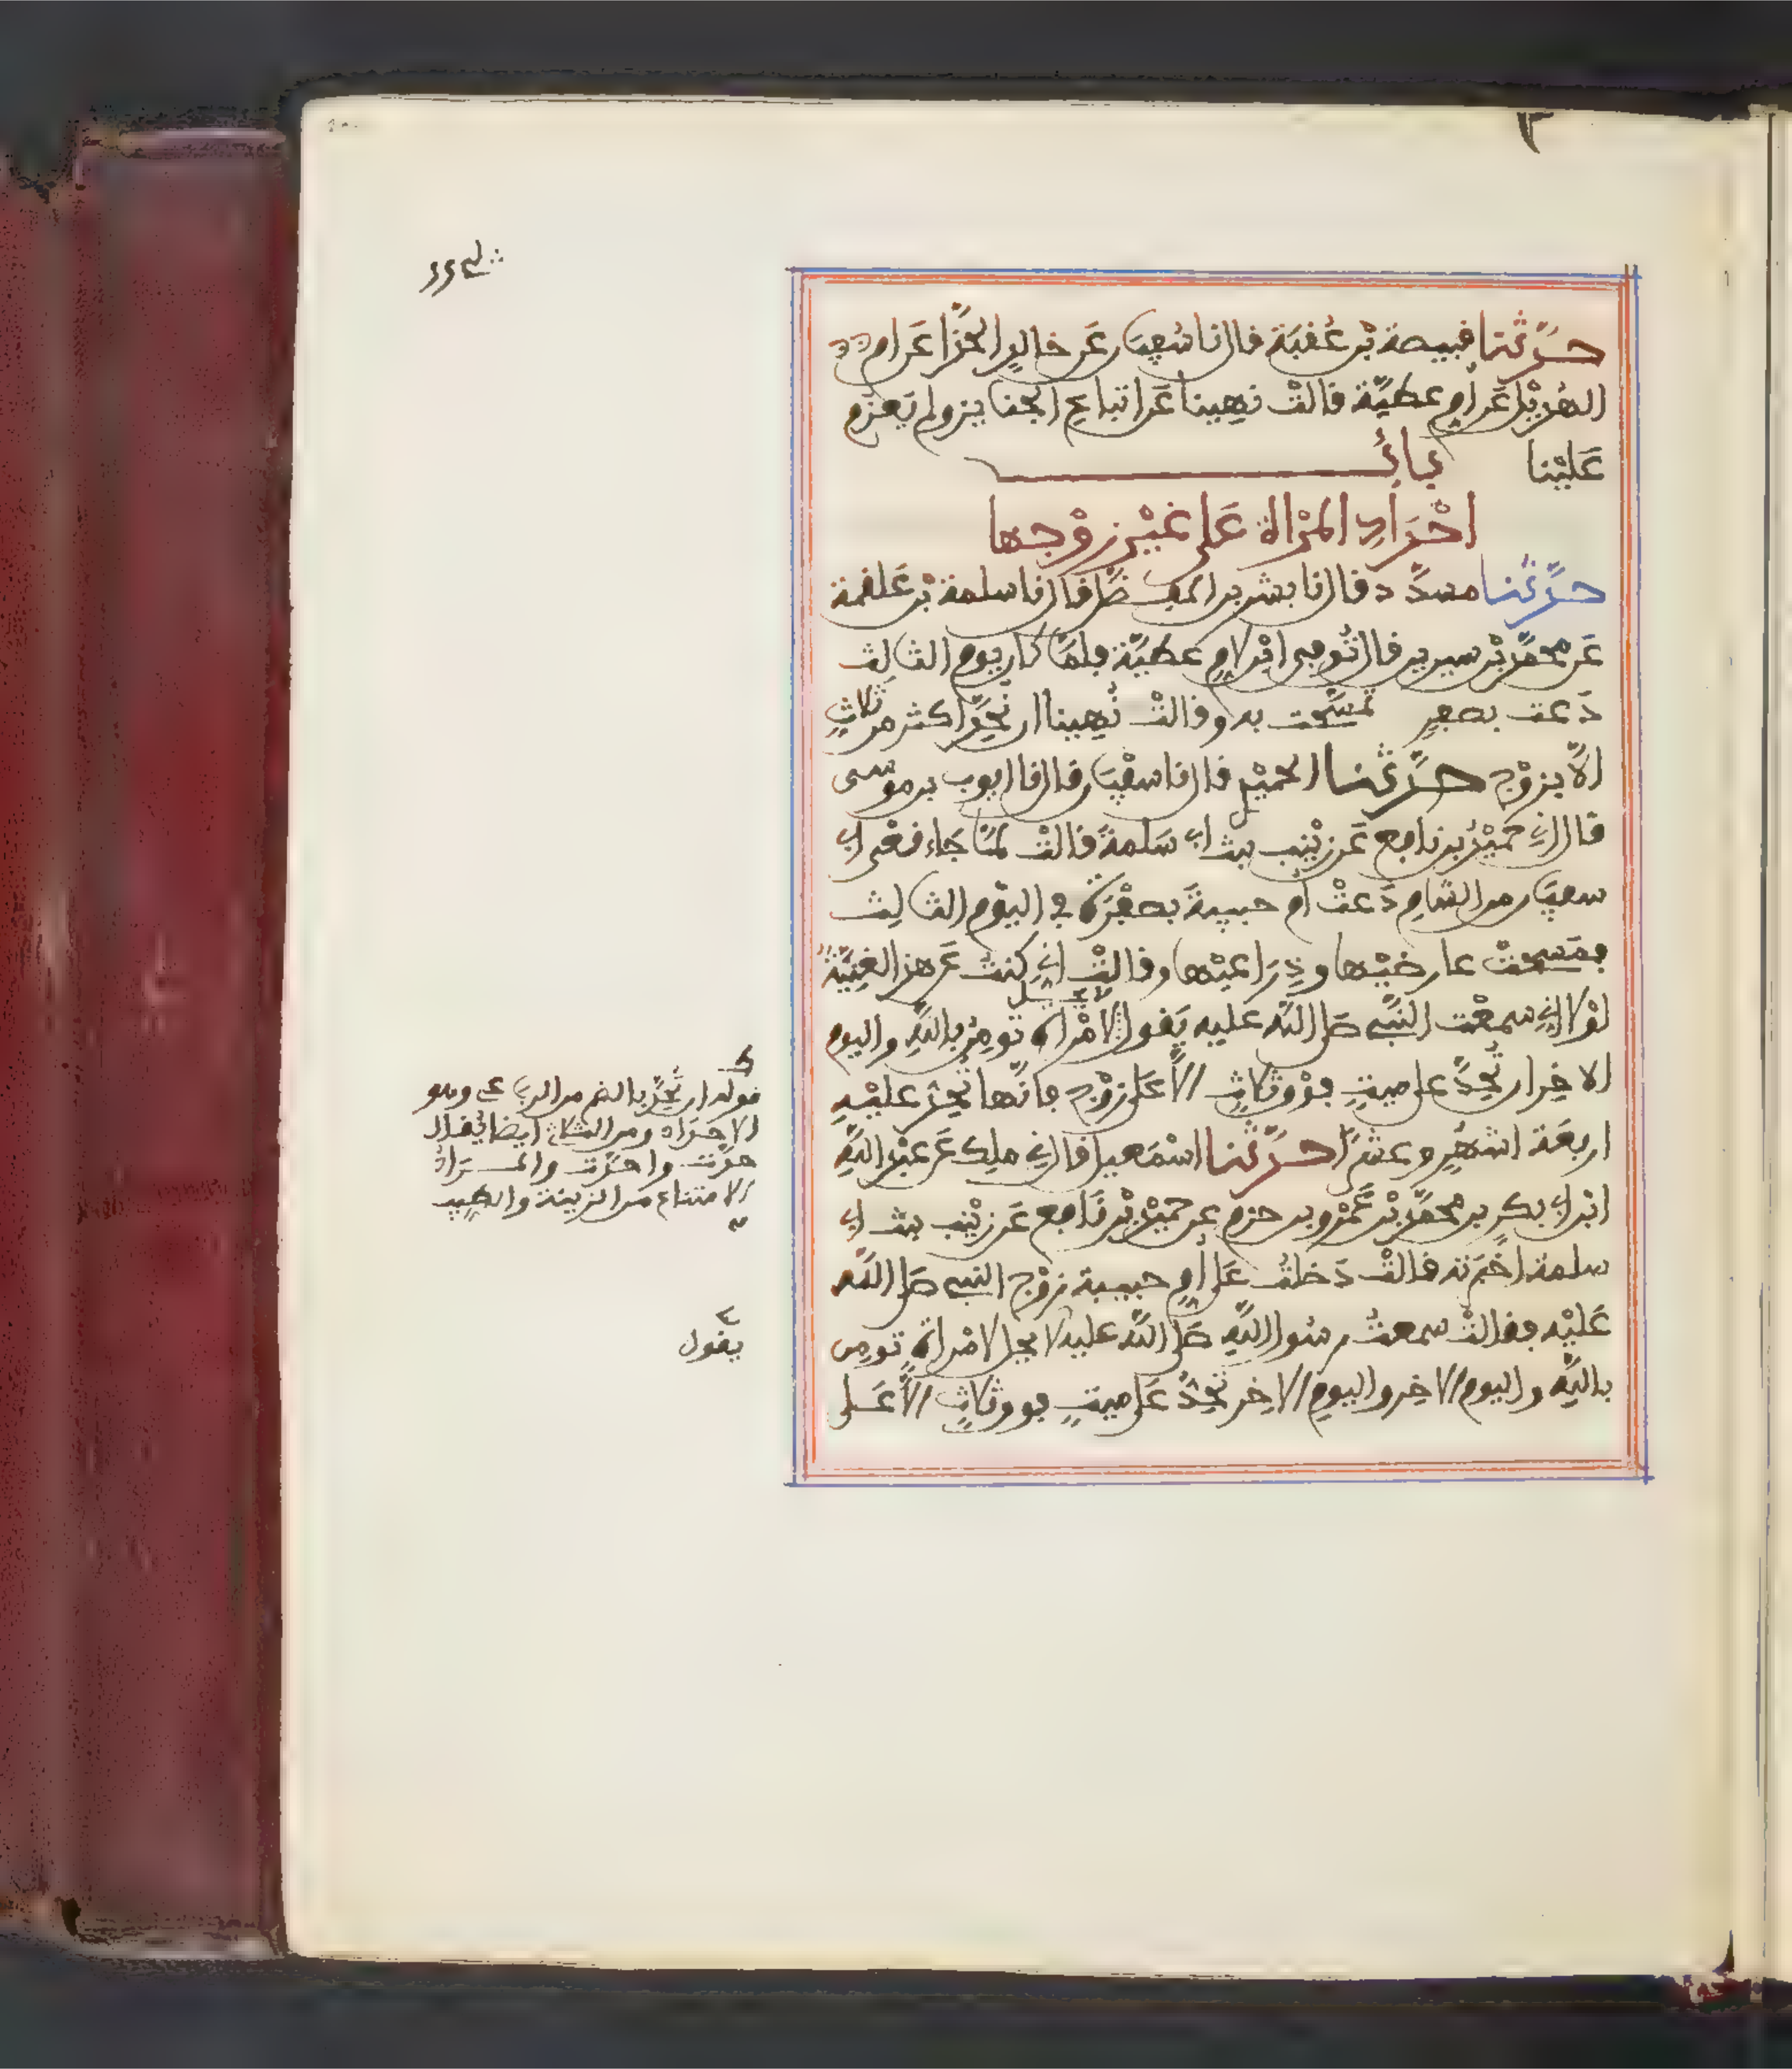 حدثنا قبيصة بن عقبة قال نا سفين عن خالد الحذا عن ام
الهذيل عن ام عطية قالت نهينا عن اتباع الجنايز ولم يعزم
علينا باب
احداد المراة على غير زوجها
حدثنا مسدد قال نا بشر بن المفضل قال نا سلمة بن علقمة
عن محمد بن سيرين قال توفى ابن لام عطية فلما كان يوم الثالث
دعت بصفر تمسحت به وقالت نهينا ان نحد اكثر من ثلاث
الا بزوج حدثنا الحميد قال نا سفين قال نا ايوب بن موسى
قال اني حميد بن نافع عن زينب بنت ابي سلمة قالت لما جاء نعى ابي
سفين من الشام دعت ام حبيبة بصفرة في اليوم الثالث
فمسحت عارضيها وذراعيها وقالت اني كنت عن هذا لغنية
لولا اني سمعت النبي صلى الله عليه يقول لا يحل لامراة تومن بالله واليوم
الاخر ان تحد على ميت فوق ثلاث الا على زوج فانها تحد عليه
اربعة اشهر وعشرا حدثنا اسمعيل قال ني ملك عن عبد الله
ابن ابي بكر بن محمد بن عمرو بن حزم عن حميد بن نافع عن زينب بنت ابي
سلمة اخبرته قالت دخلت على ام حبيبة زوج النبي صلى الله
عليه فقالت سمعت رسول الله صلى الله عليه لا يحل لامراة تومن
بالله واليوم الاخر واليوم الاخر تحد على ميت فوق ثلاث الا على
قوله ان تحد بالضم من الرباعي وهو
الاحداد ومن الثلاثي ايضا يقال
حدت واحدت والمراد
الامتناع من الزينة والطيب
يقول